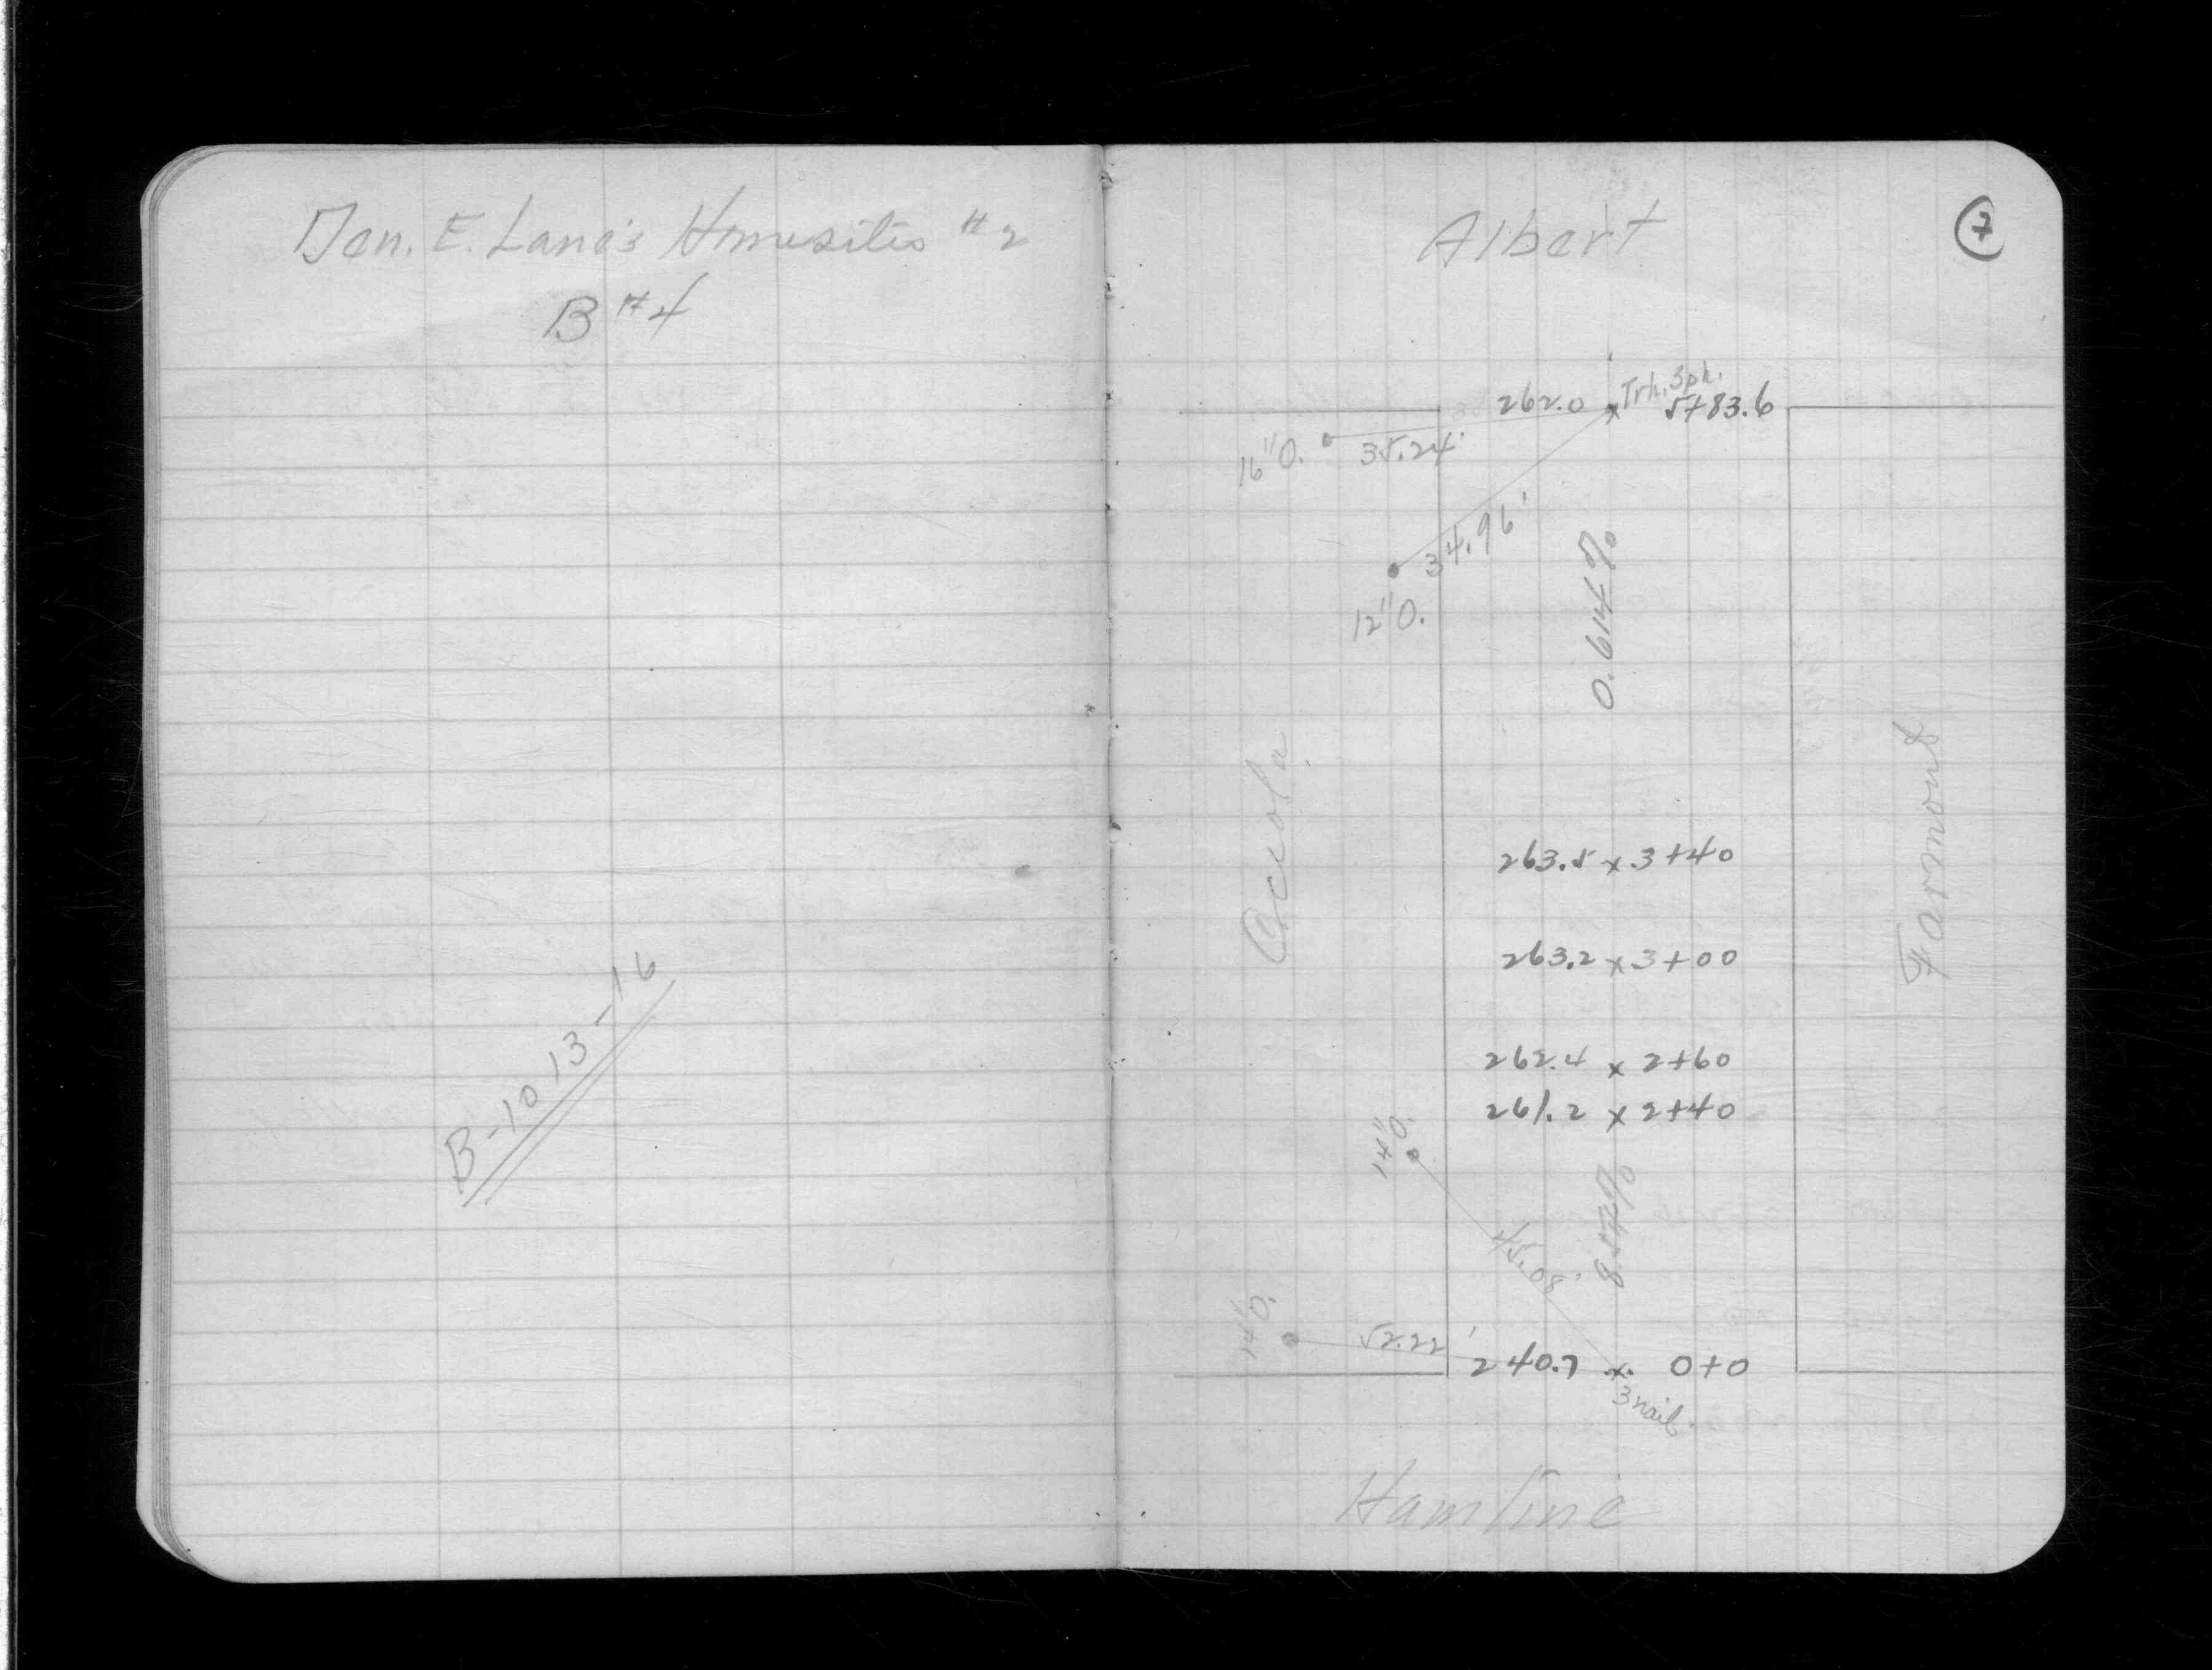 Den. E. Lane's Homesites #2
B #4
B-10 13-16
7
Albert
262.0 x Trh. 3ph. 5+83.6
16"O. 35.24'
34.96'
12"O.
0.614%
Acuola
Farmount
263.5 x 3+40
263.2 x 3+00
262.4 x 2+60
261.2 x 2+40
14"O.
45.08'
8.54%
14"O. 52.22'
240.7 x 0+0
3 nail.
Hamline